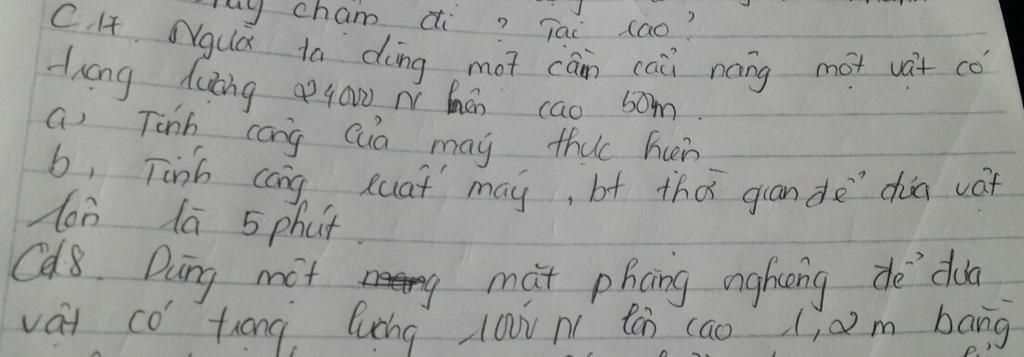 máy chậm đi ? Tại sao?
C.17. Người ta dùng một cần cẩu nâng một vật có
trọng lượng 24000 N lên cao 50m.
a, Tính công của máy thực hiện
b, Tính công suất máy, bt thời gian để đưa vật
lên là 5 phút.
Câ18. Dùng một mặt phẳng nghiêng để đưa
vật có trọng lượng 1000 N lên cao 1,2 m bằng